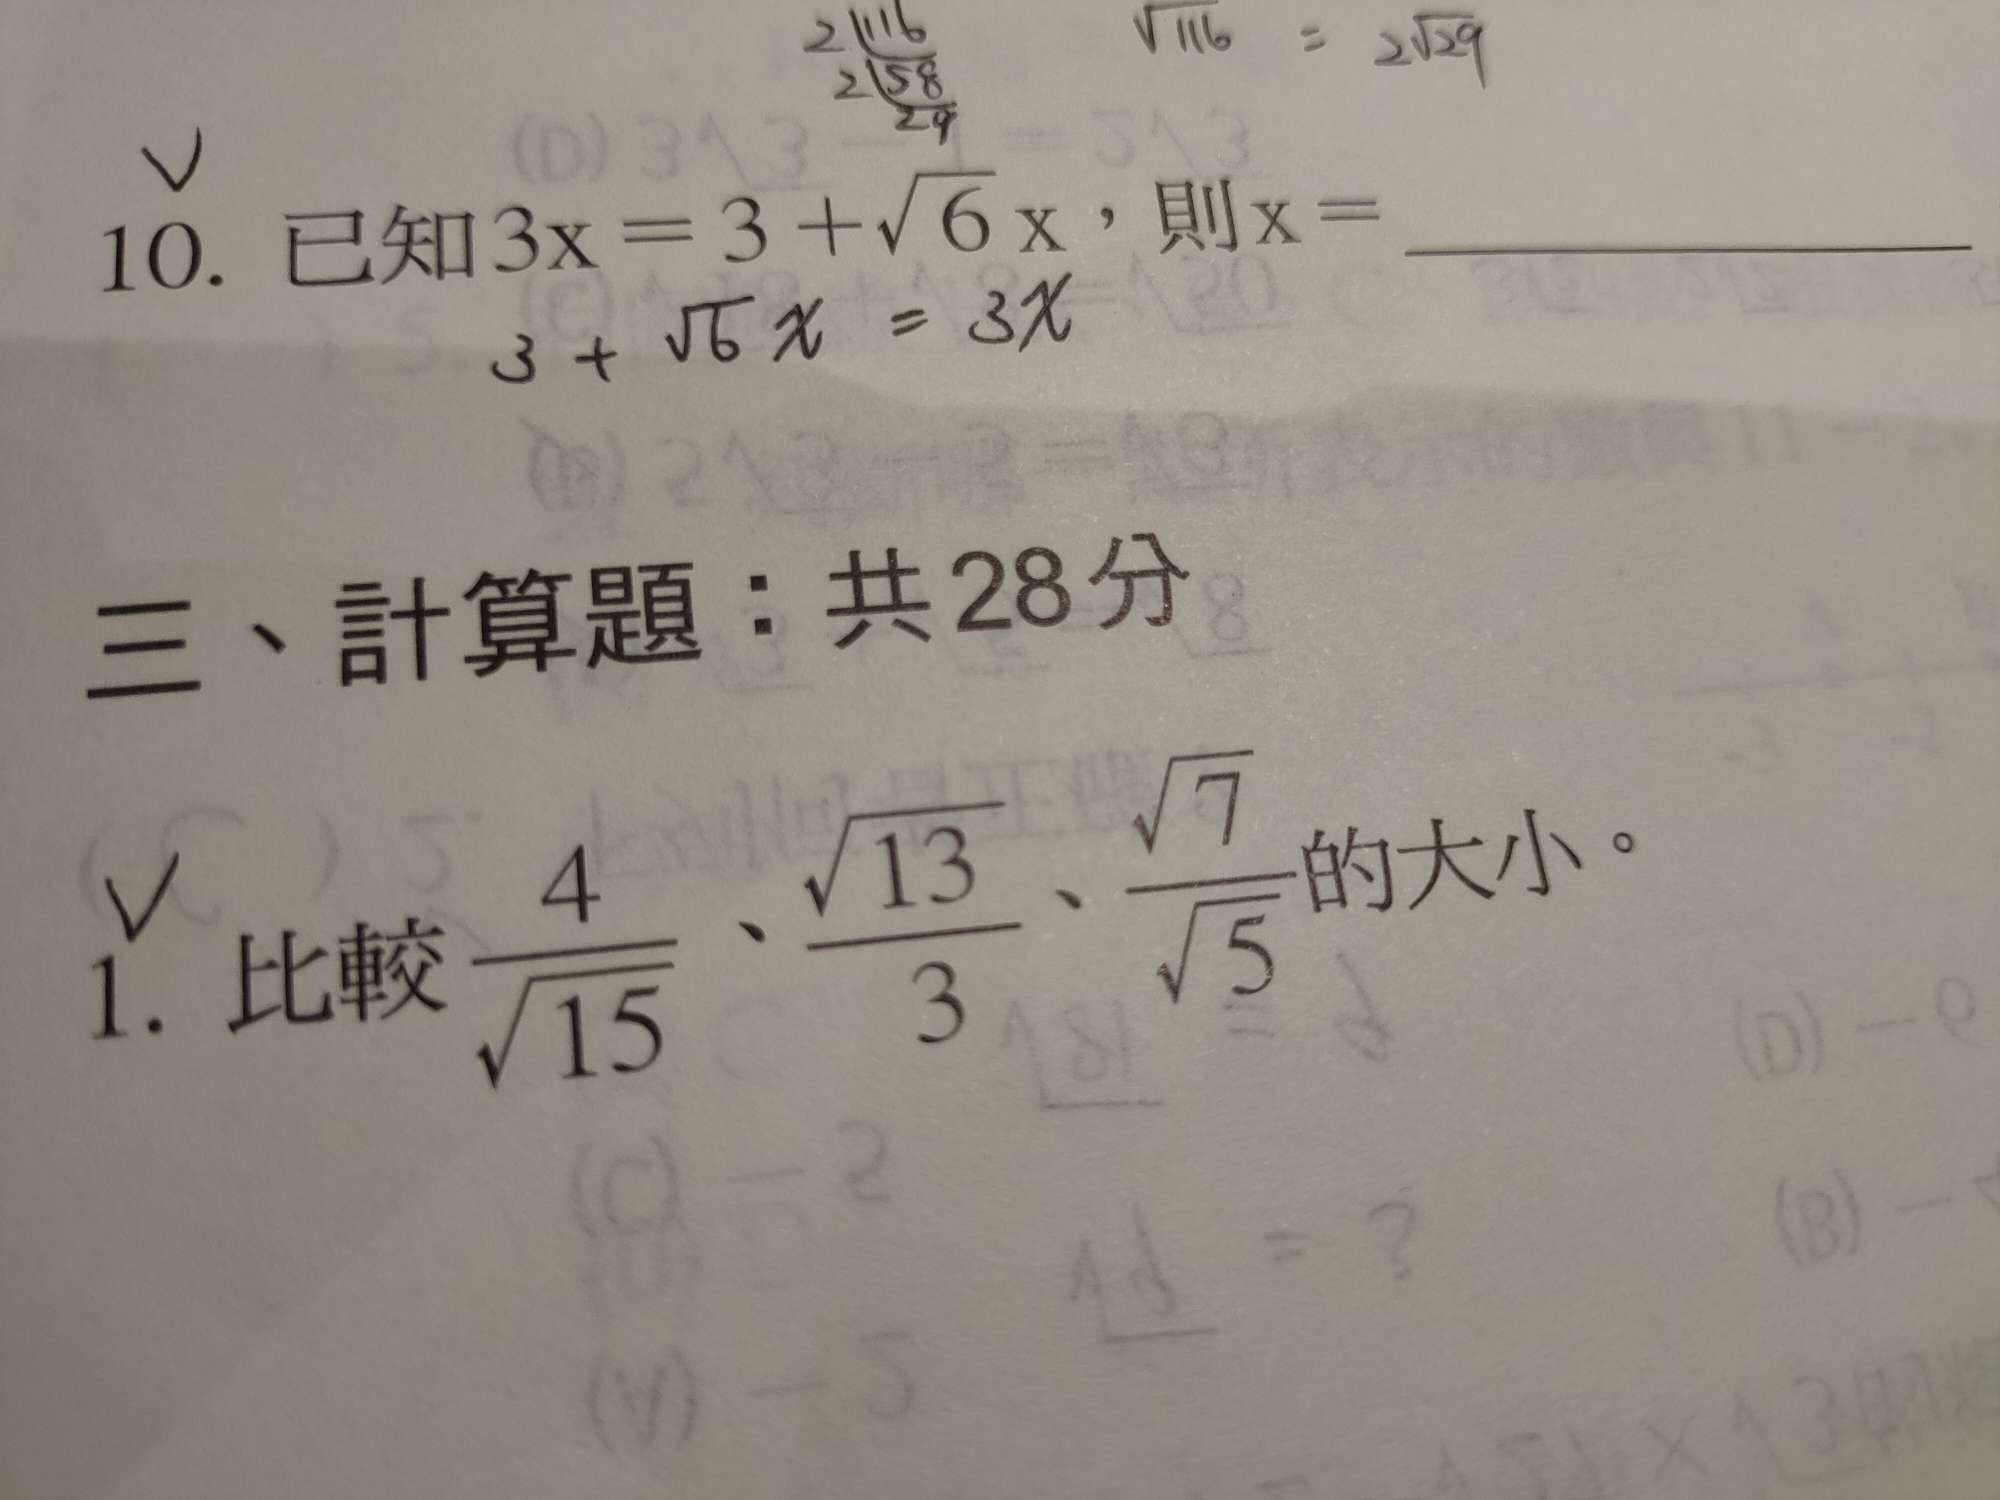 2 116 √116 = 2√29
2 58
29
✓
10. 已知3x=3+√6x，則x=
3 + √6 x = 3x
三、計算題：共28分
✓
1. 比較4/√15、√13/3、√7/√5的大小。